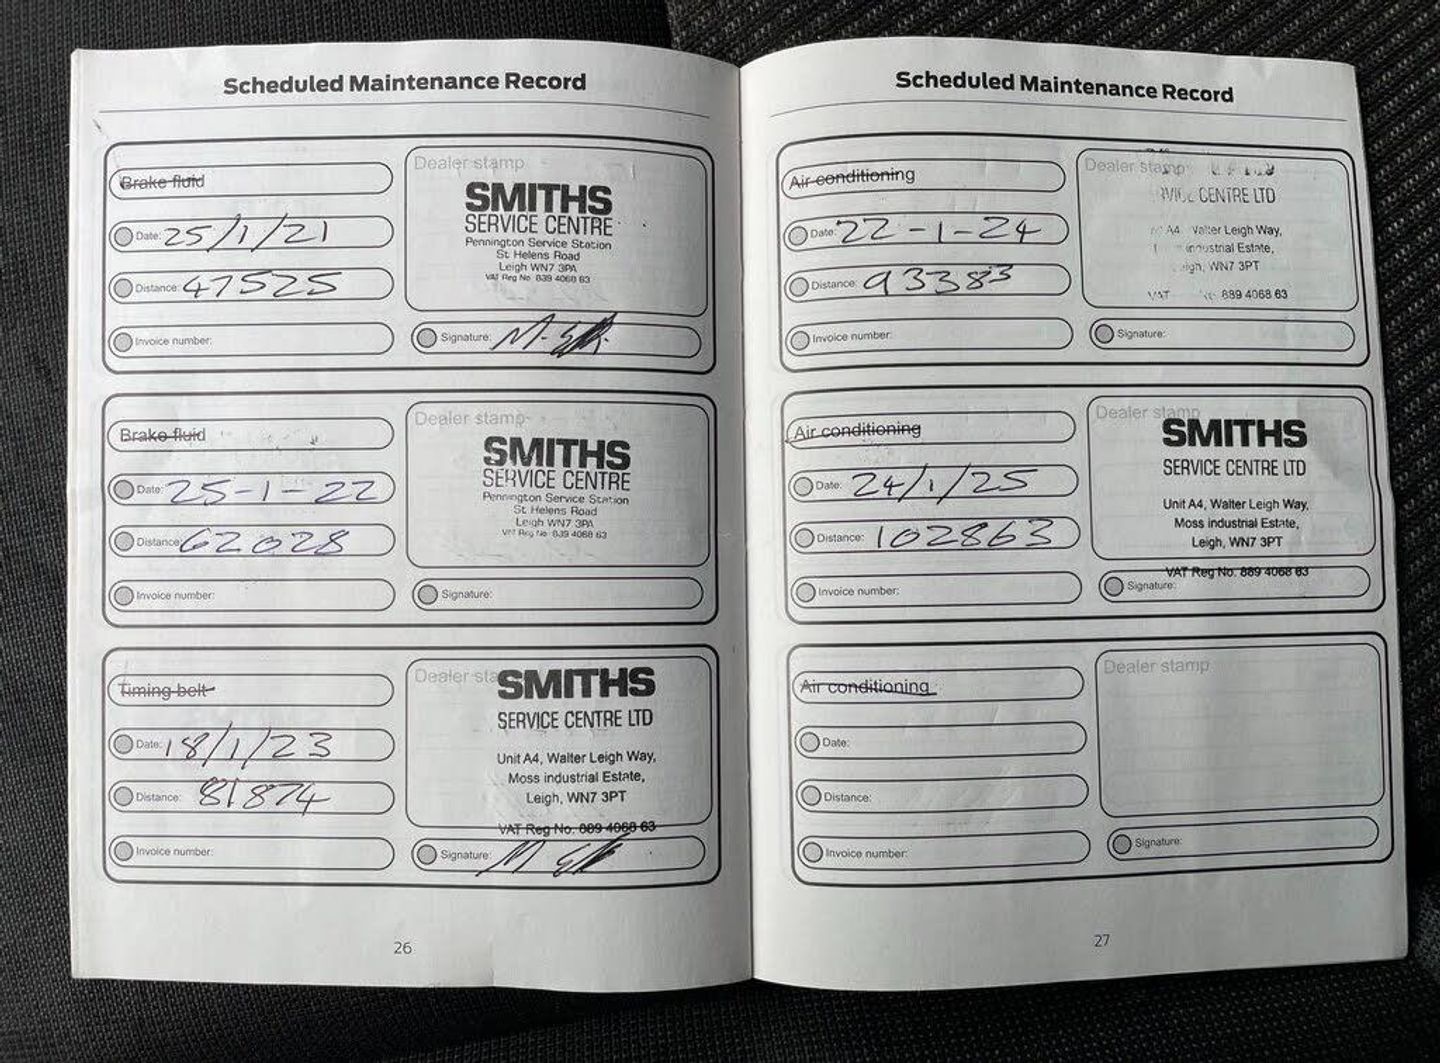 Scheduled Maintenance Record
Brake fluid
Date: 25/1/21
Distance: 47525
Invoice number:
Dealer stamp
SMITHS
SERVICE CENTRE
Pennington Service Station
St Helens Road
Leigh WN7 3PA
VAT Reg No 839 4068 63
Signature:
Brake fluid
Date: 25-1-22
Distance: 62028
Invoice number:
Dealer stamp
SMITHS
SERVICE CENTRE
Pennington Service Station
St Helens Road
Leigh WN7 3PA
VAT Reg No 839 4068 63
Signature:
Timing belt
Date: 18/1/23
Distance: 81874
Invoice number:
Dealer
SMITHS
SERVICE CENTRE LTD
Unit A4, Walter Leigh Way,
Moss industrial Estate,
Leigh, WN7 3PT
VAT Reg No. 889 4068 63
Signature:
26
Scheduled Maintenance Record
Air conditioning
Date: 22-1-24
Distance: 93383
Invoice number:
Dealer stamp
CENTRE LTD
A4 Walter Leigh Way,
industrial Estate,
WN7 3PT
VAT 889 4068 63
Signature:
Air conditioning
Date: 24/1/25
Distance: 102863
Invoice number:
Dealer stamp
SMITHS
SERVICE CENTRE LTD
Unit A4, Walter Leigh Way,
Moss industrial Estate,
Leigh, WN7 3PT
VAT Reg No. 889 4068 63
Signature:
Air conditioning
Date:
Distance:
Invoice number:
Dealer stamp
Signature:
27